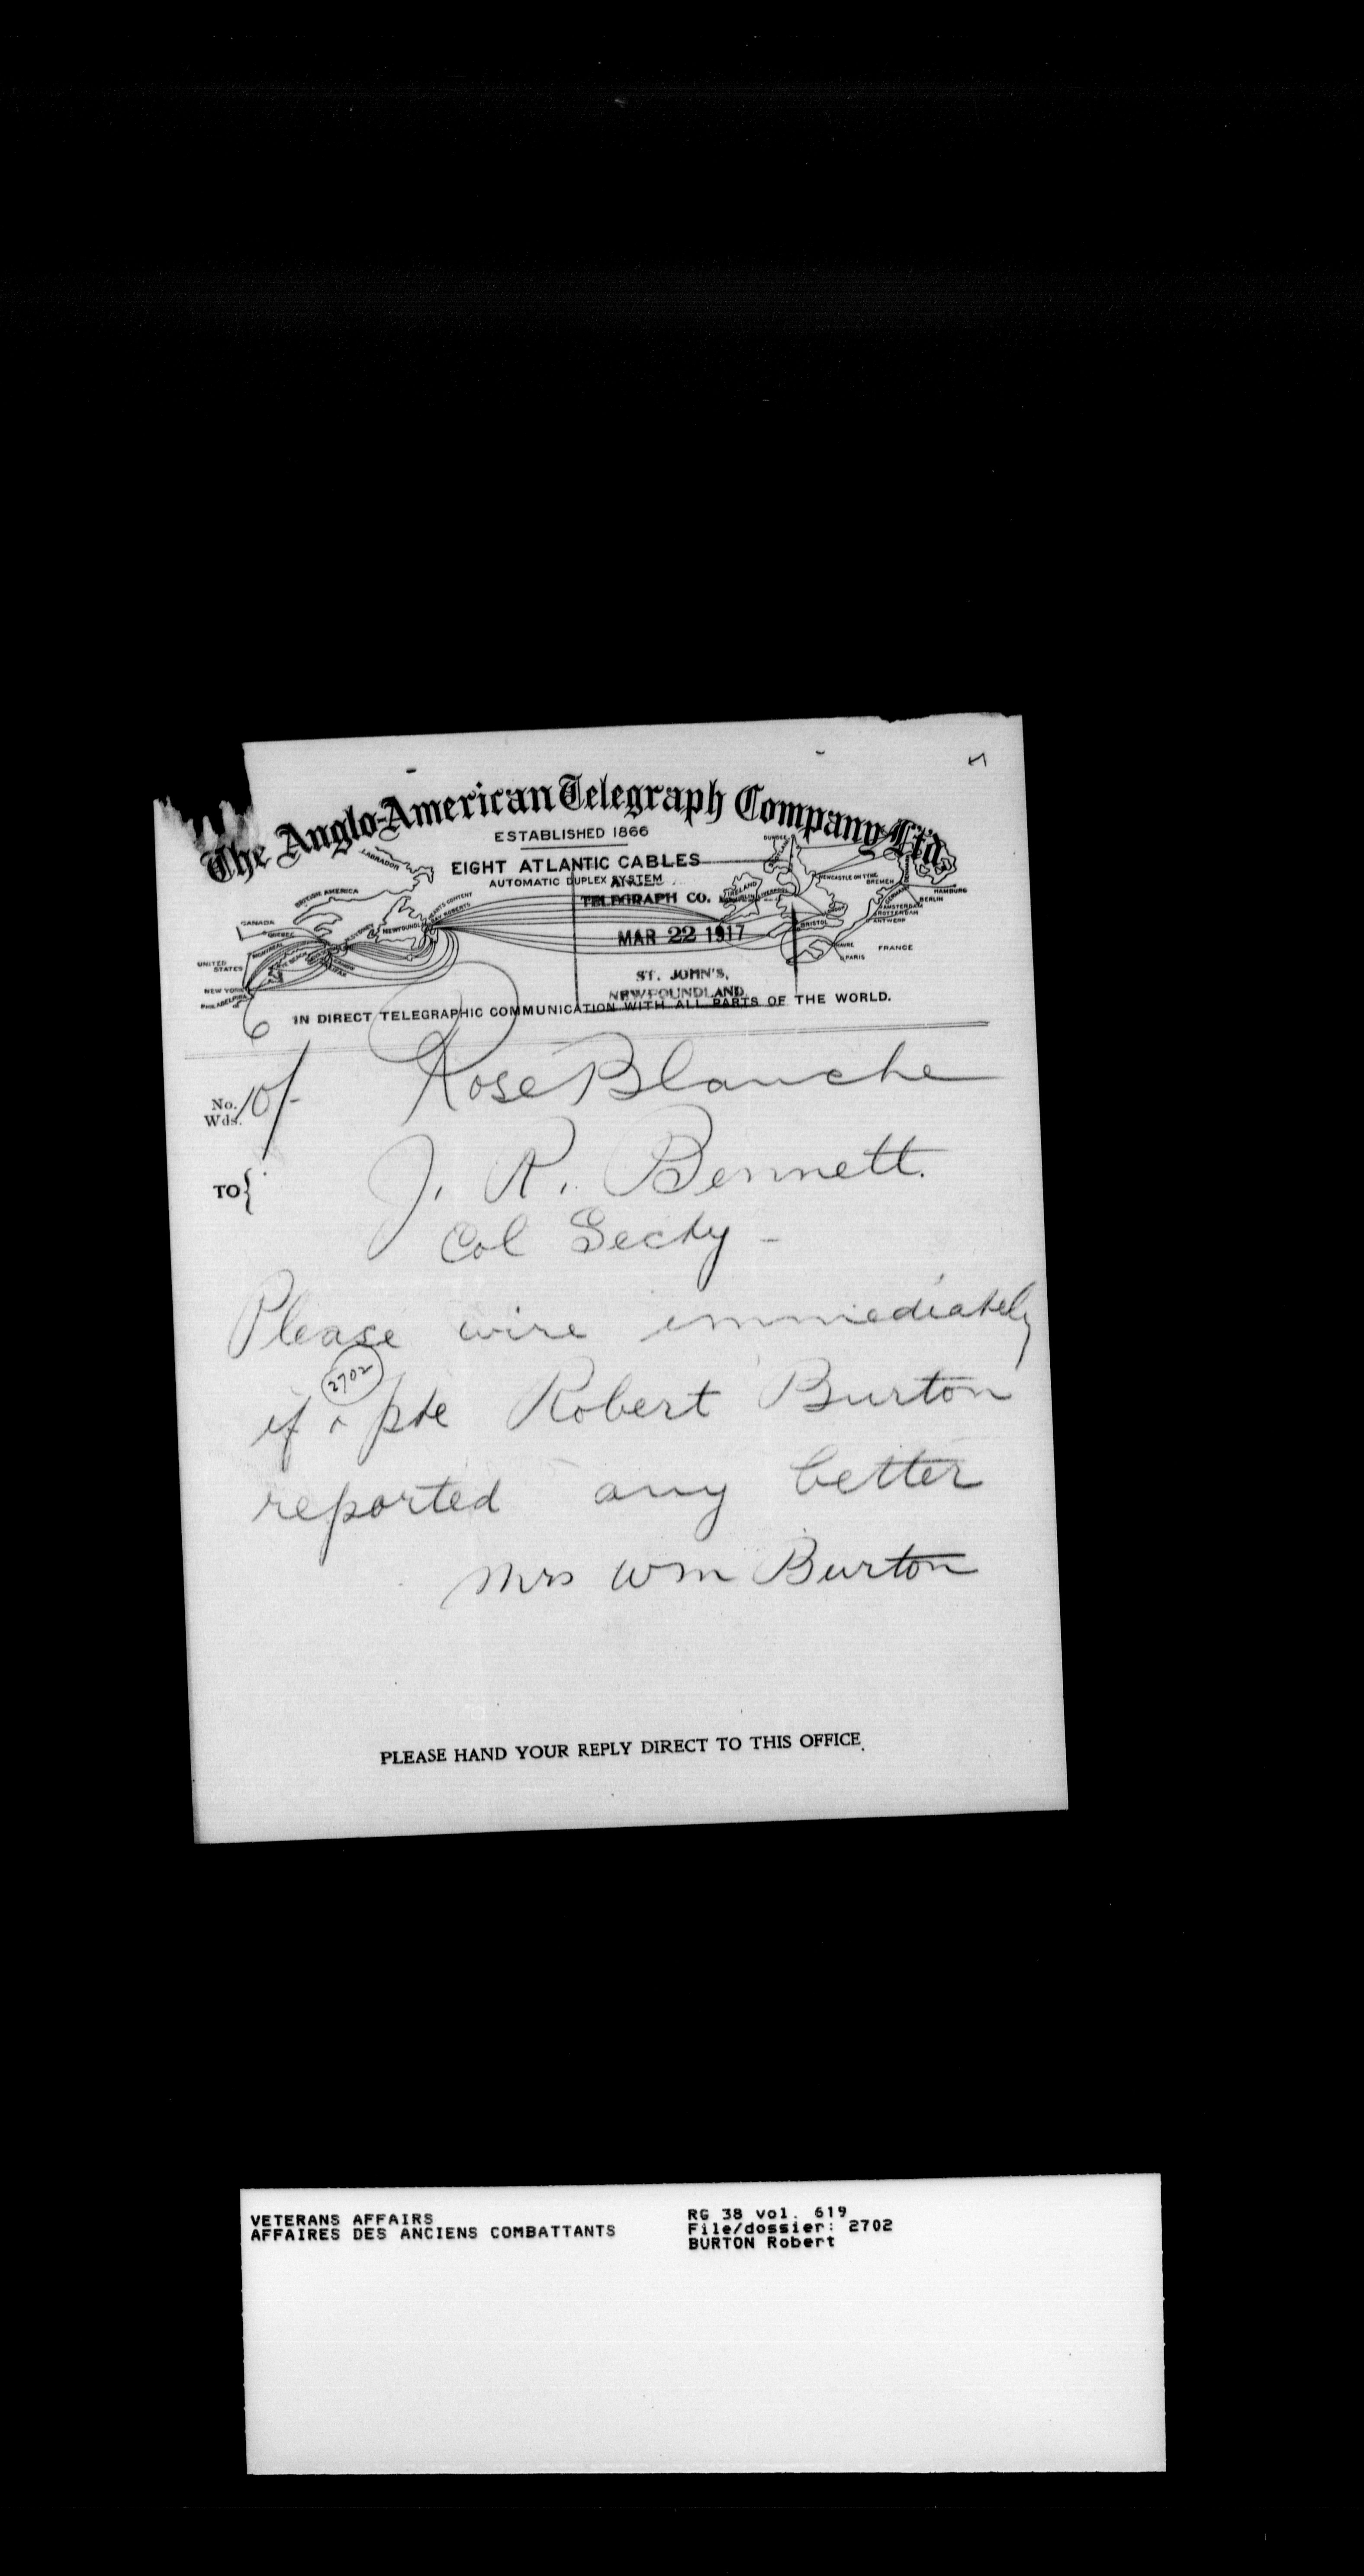 The Anglo-American Telegraph Company, Ltd.
ESTABLISHED 1866
EIGHT ATLANTIC CABLES
AUTOMATIC DUPLEX SYSTEM
TELEGRAPH CO.
MAR 22 1917
ST. JOHN'S,
NEWFOUNDLAND.
LABRADOR
BRITISH AMERICA
CANADA
QUEBEC
MONTREAL
UNITED STATES
NEW YORK
PHILADELPHIA
HEARTS CONTENT
DUNDEE
IRELAND
LIVERPOOL
NEWCASTLE ON TYNE
BREMEN
HAMBURG
BERLIN
AMSTERDAM
ROTTERDAM
ANTWERP
BRISTOL
HAVRE
PARIS
FRANCE
IN DIRECT TELEGRAPHIC COMMUNICATION WITH ALL PARTS OF THE WORLD.
No. Wds. 10/-
Rose Blanche
TO { J. R. Bennett.
Col Secty -
Please wire immediately
2702
if ^ pte Robert Burton
reported any better
Mrs Wm Burton
PLEASE HAND YOUR REPLY DIRECT TO THIS OFFICE.
VETERANS AFFAIRS
AFFAIRES DES ANCIENS COMBATTANTS
RG 38 vol. 619
File/dossier: 2702
BURTON Robert